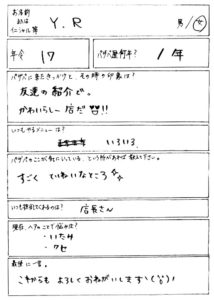 お名前
又は
イニシャル等
Y.R
男/女
年令 17
パサパ歴何年? 1年
パサパに来たきっかけと、その時の印象は?
友達の紹介で。
かわいらしー店だ!!
いつもやるメニューは?
いろいろ
パサパのここが気にいっている、という所があれば教えて下さい。
すごく ていねいなところ
いつも担当してくれるのは? 店長さん
現在、ヘアのことで悩みは?
・いたみ
・クセ
最後に一言。
これからも よろしくおねがいします